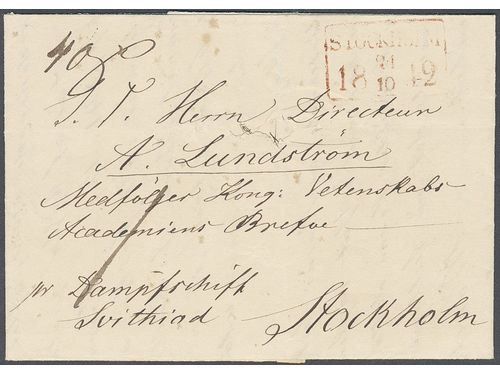 40
STOCKHOLM
24
18 10 42
S. T. Herrn Directeur
N. Lundström
Medföljer Kong: Vetenskabs
Academiens Brefve
pr Dampfschiff
Svithiod
Stockholm